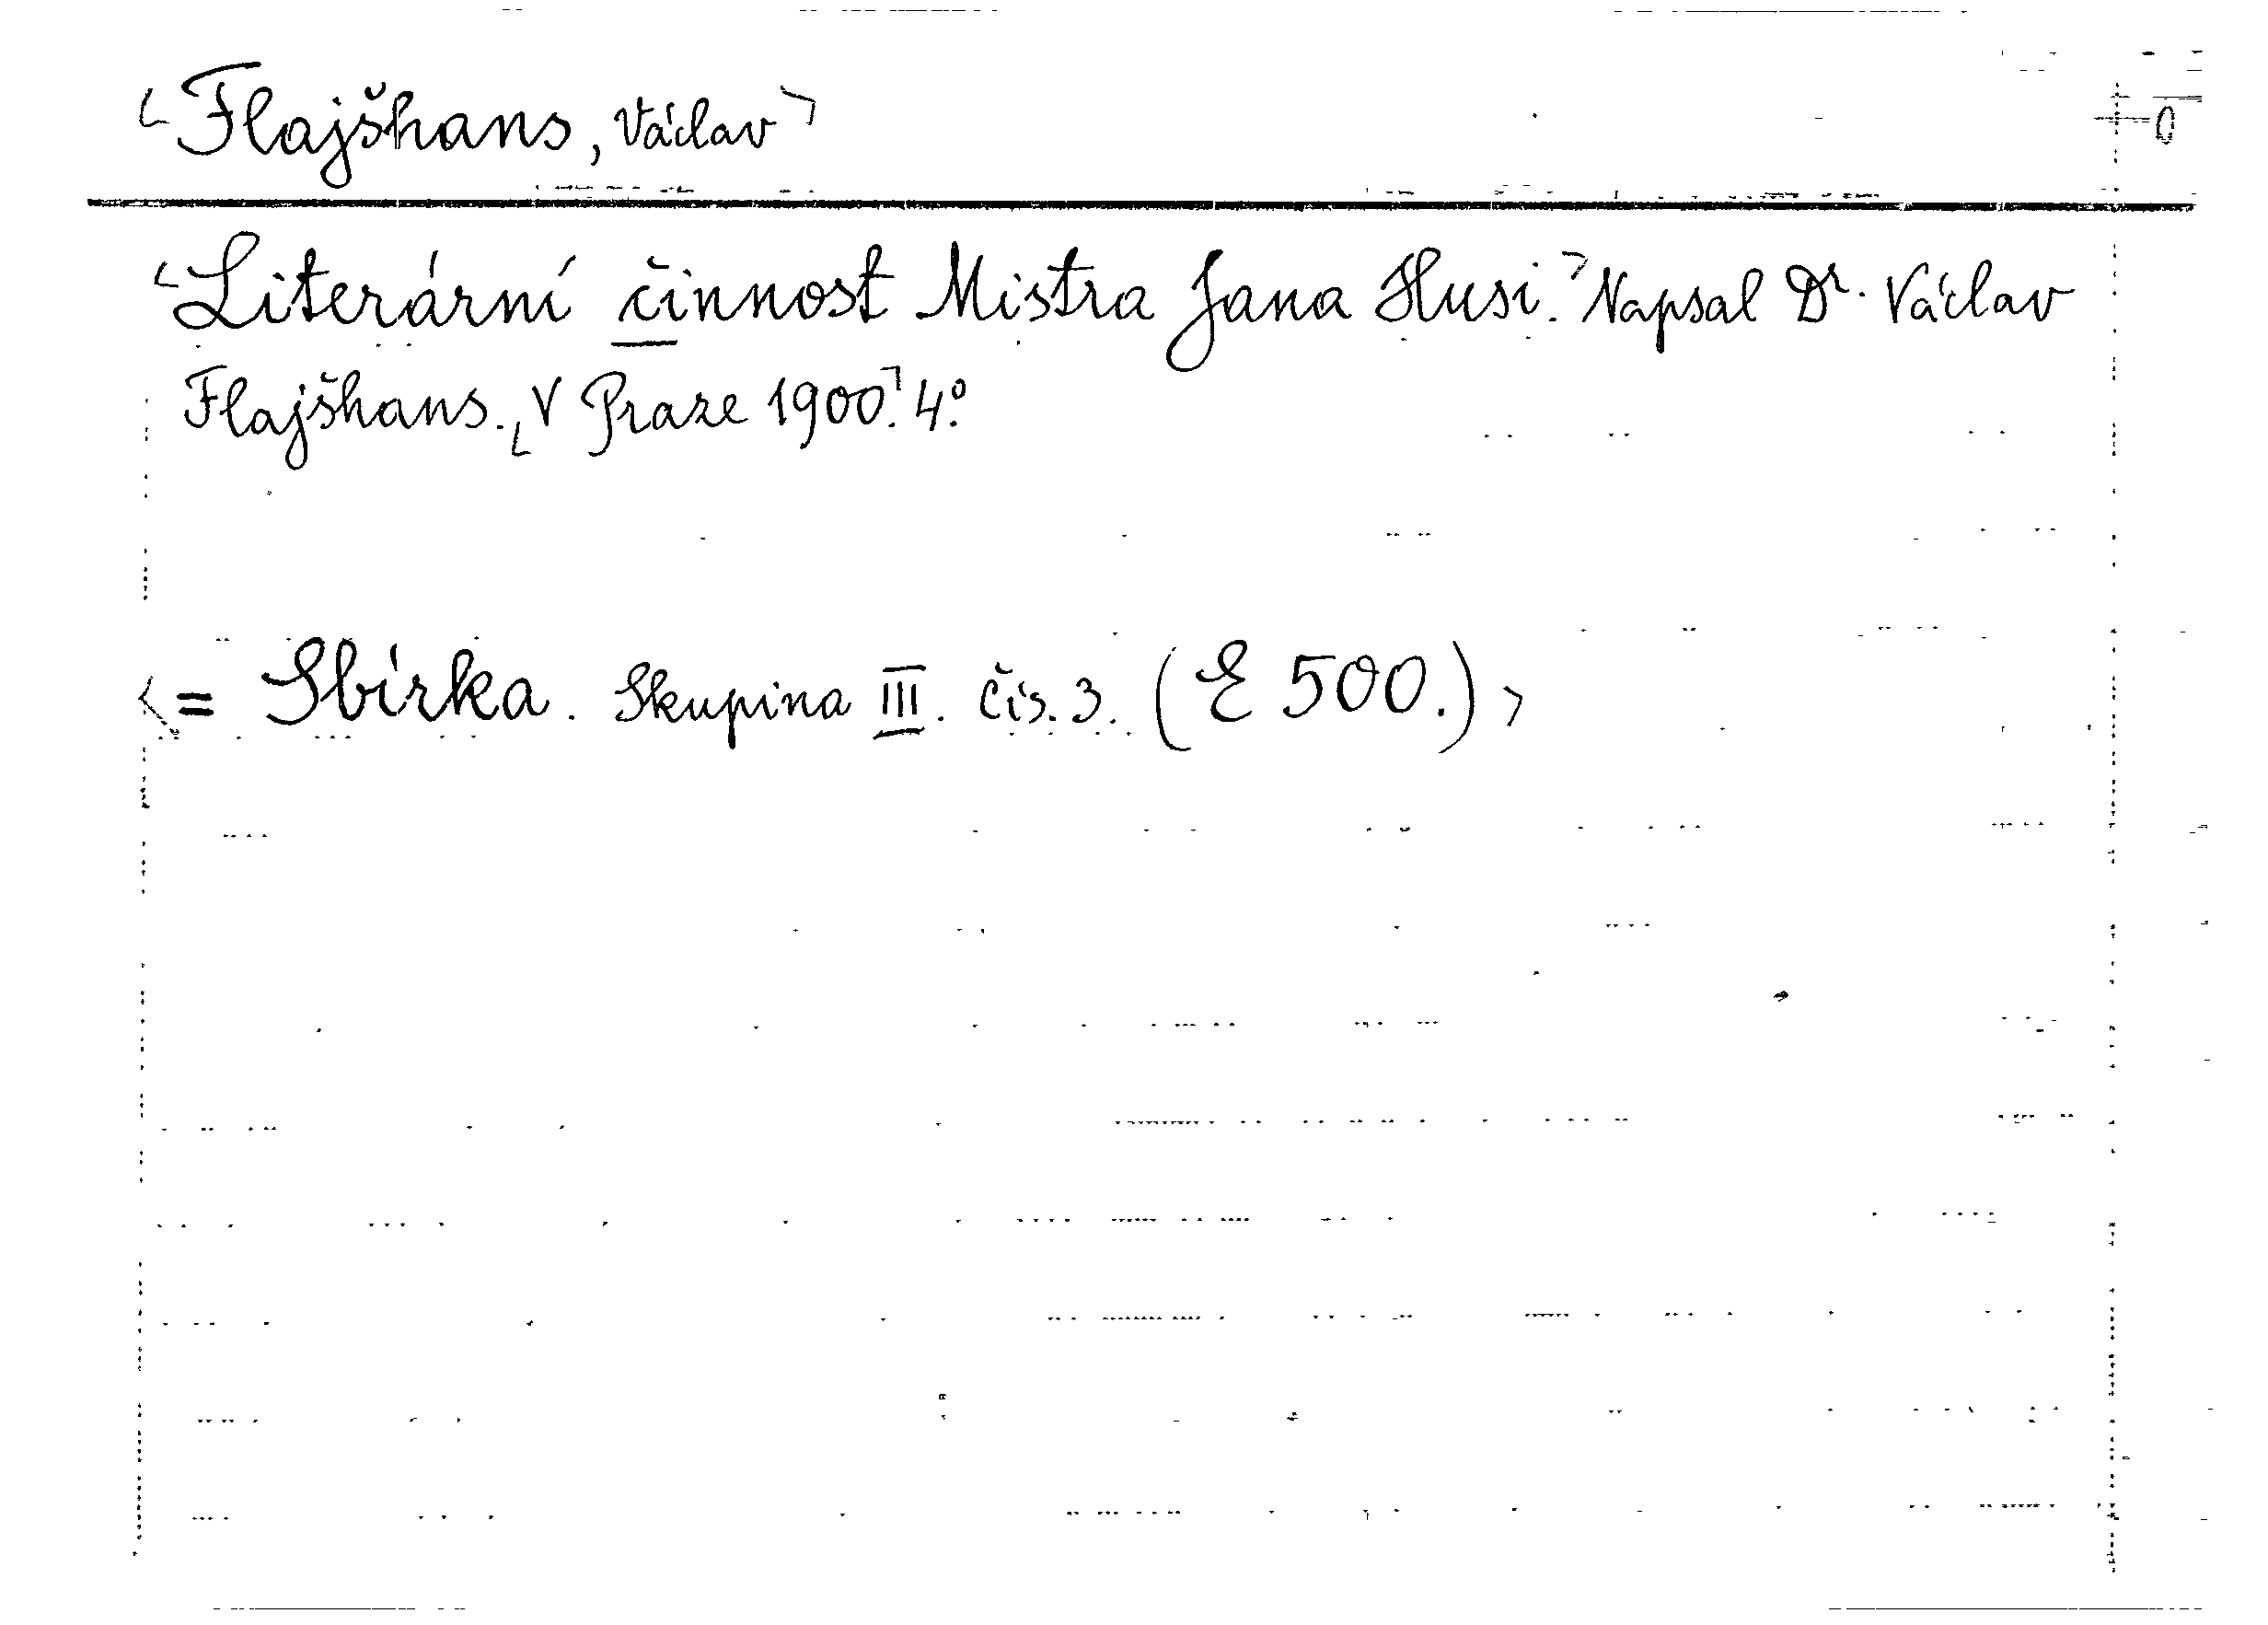 Flajšhans, Václav
Literární činnost Mistra Jana Husi. Napsal Dr. Václav
Flajšhans. V Praze 1900. 4º.
<= Sbírka. Skupina III. čís. 3. (E 500.)>